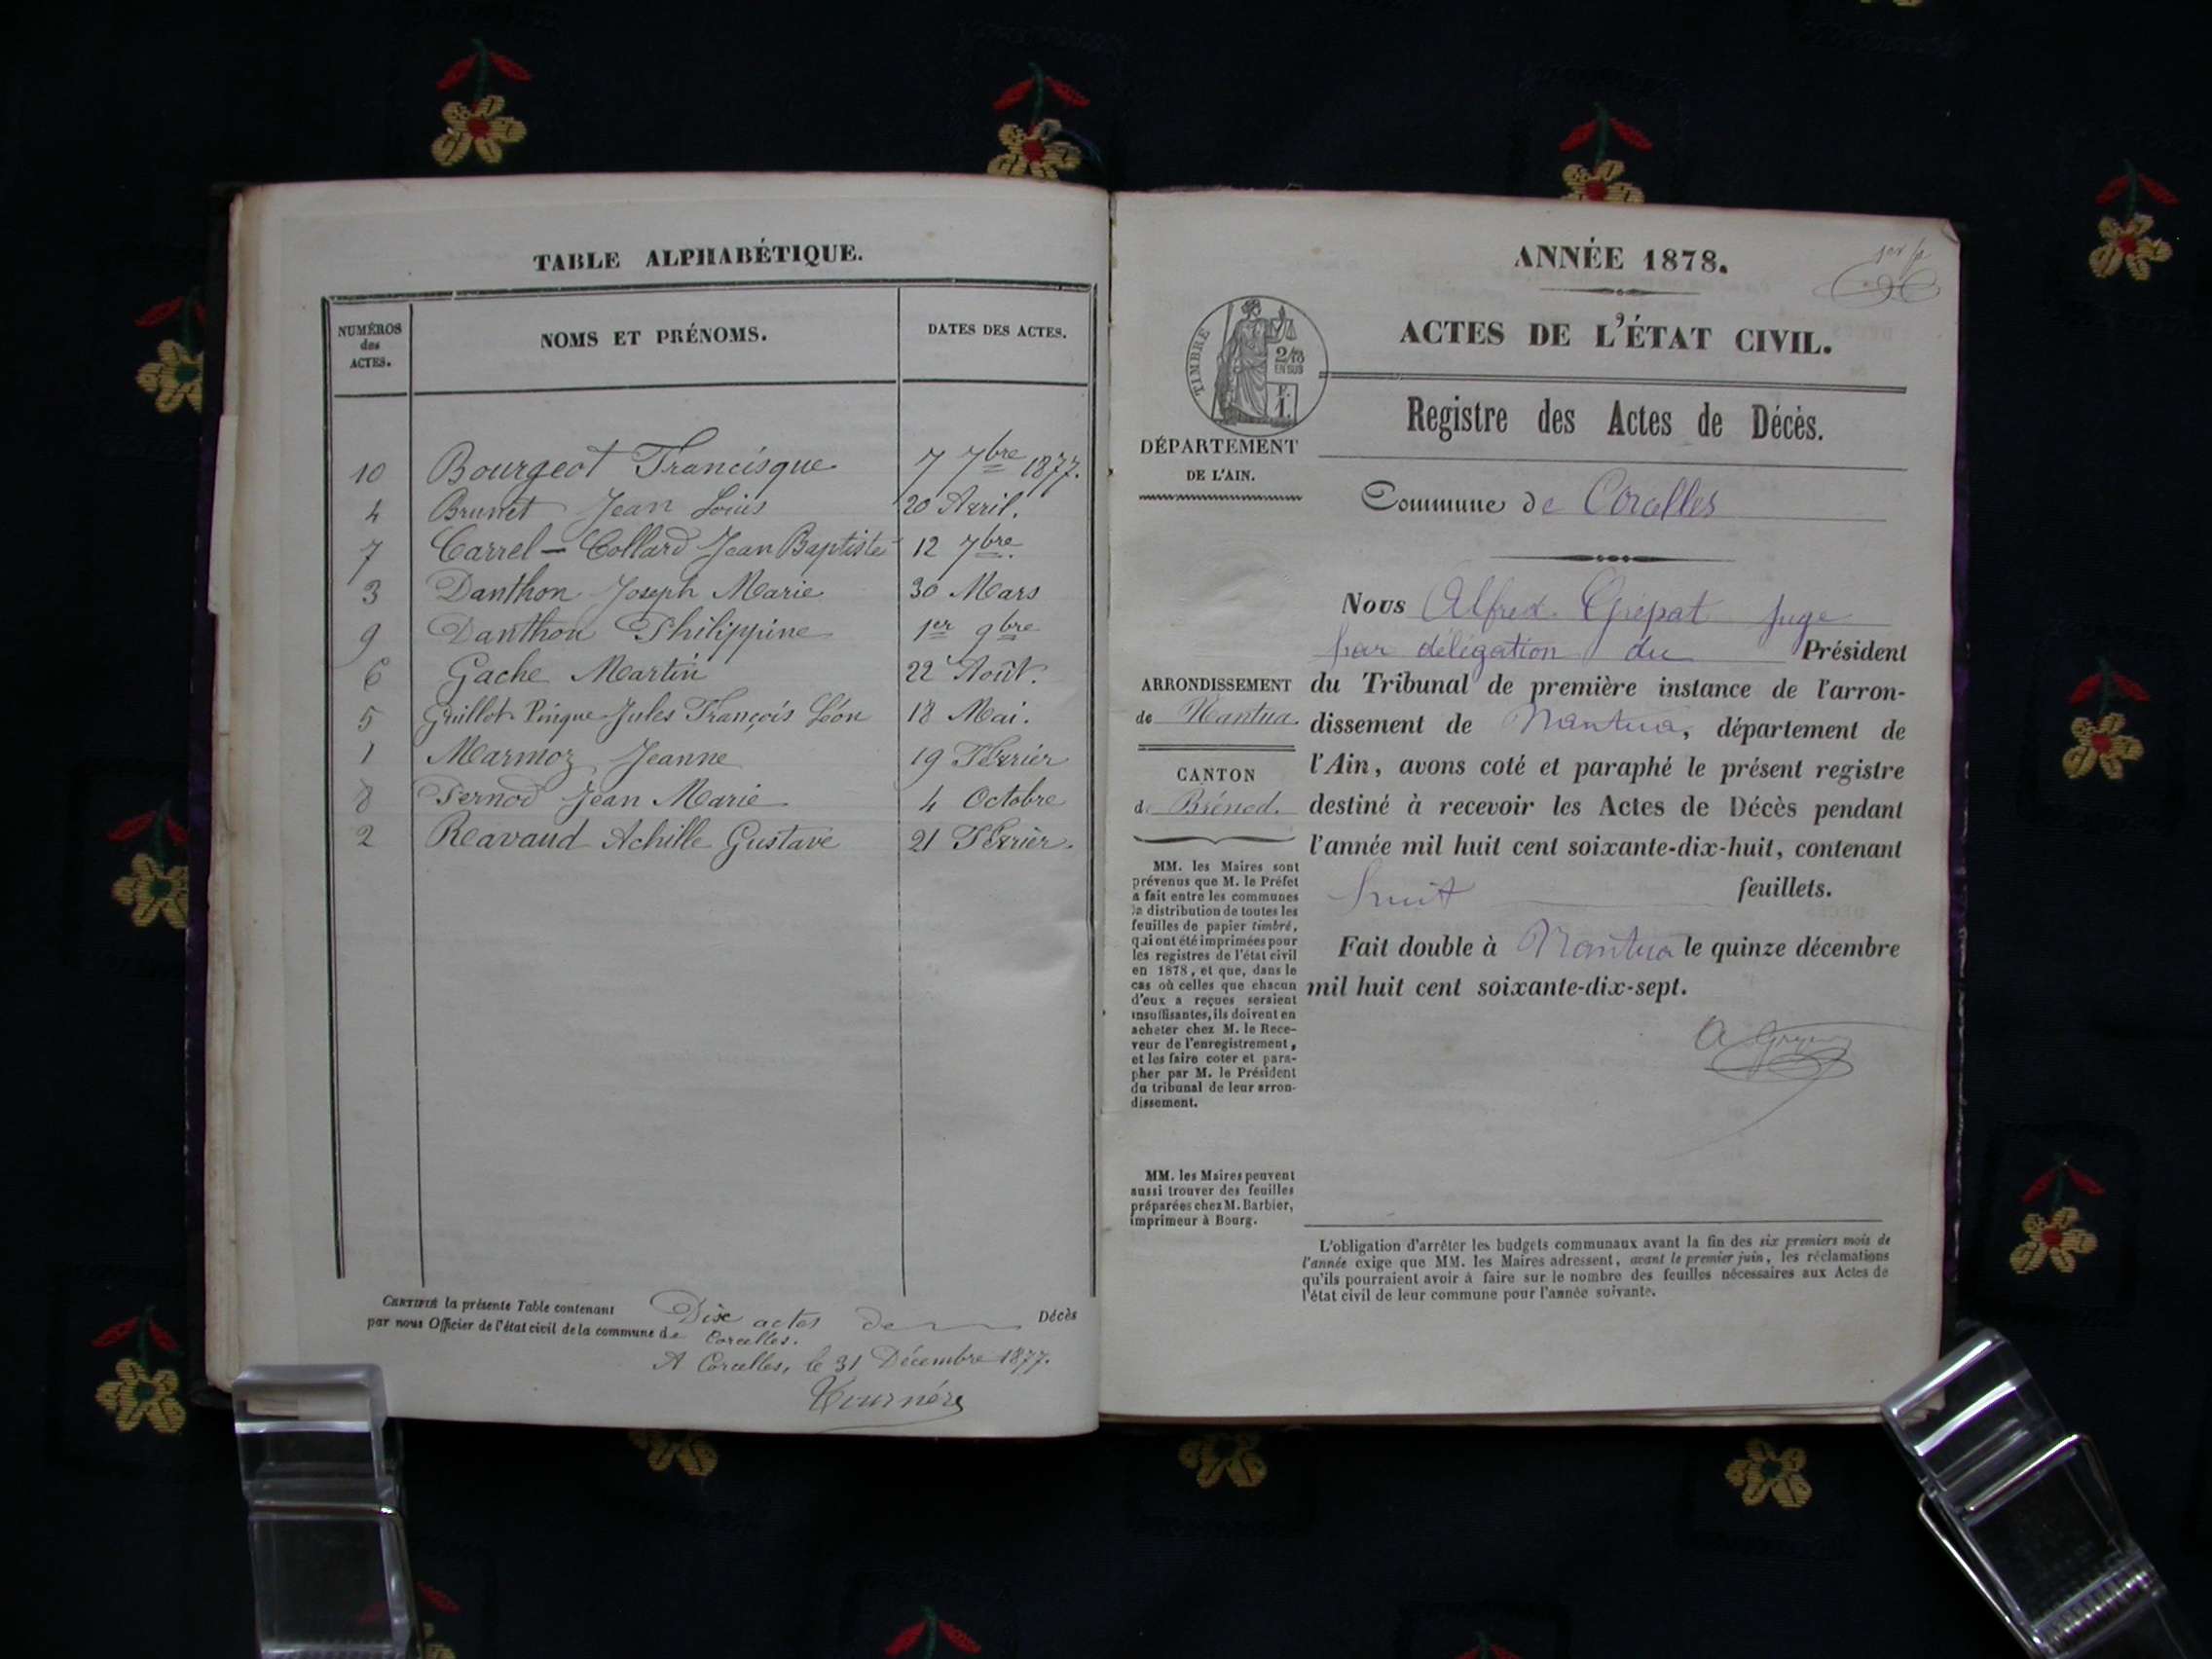 TABLE ALPHABÉTIQUE.
NUMÉROS des ACTES.
NOMS ET PRÉNOMS.
DATES DES ACTES.
10 Bourgeot Francisque 7 7bre 1877.
4 Brunet Jean Louis 20 Avril.
7 Carrel-Collard Jean Baptiste 12 7bre.
3 Danthon Joseph Marie 30 Mars
9 Danthon Philippine 1er 9bre
6 Gache Martin 22 Août.
5 Guillot-Pingue Jules François Léon 18 Mai.
1 Marmoz Jeanne 19 Février
8 Pernod Jean Marie 4 Octobre
2 Reavaud Achille Gustave 21 Février.
CERTIFIÉ la présente Table contenant Dix actes de Décès
par nous Officier de l'état civil de la commune de Corcelles.
A Corcelles, le 31 Décembre 1877.
ANNÉE 1878.
ACTES DE L'ÉTAT CIVIL.
TIMBRE
2/10
EN SUS
F.
1.
Registre des Actes de Décès.
DÉPARTEMENT
DE L'AIN.
Commune de Corcelles
Nous Alfred Grépat Juge
par délégation du Président
du Tribunal de première instance de l'arron-
dissement de Nantua, département de
l'Ain, avons coté et paraphé le présent registre
destiné à recevoir les Actes de Décès pendant
l'année mil huit cent soixante-dix-huit, contenant
huit feuillets.
Fait double à Nantua le quinze décembre
mil huit cent soixante-dix-sept.
ARRONDISSEMENT
de Nantua.
CANTON
de Brénod.
MM. les Maires sont
prévenus que M. le Préfet
a fait entre les communes
la distribution de toutes les
feuilles de papier timbré,
qui ont été imprimées pour
les registres de l'état civil
en 1878, et que, dans le
cas où celles que chacun
d'eux a reçues seraient
insuffisantes, ils doivent en
acheter chez M. le Rece-
veur de l'enregistrement,
et les faire coter et para-
pher par M. le Président
du tribunal de leur arron-
dissement.
MM. les Maires peuvent
aussi trouver des feuilles
préparées chez M. Barbier,
imprimeur à Bourg.
L'obligation d'arrêter les budgets communaux avant la fin des six premiers mois de
l'année exige que MM. les Maires adressent, avant le premier juin, les réclamations
qu'ils pourraient avoir à faire sur le nombre des feuilles nécessaires aux Actes de
l'état civil de leur commune pour l'année suivante.